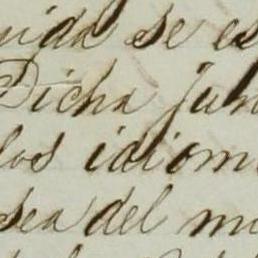 uida se es
Dicha jun
los idiom
sea del m